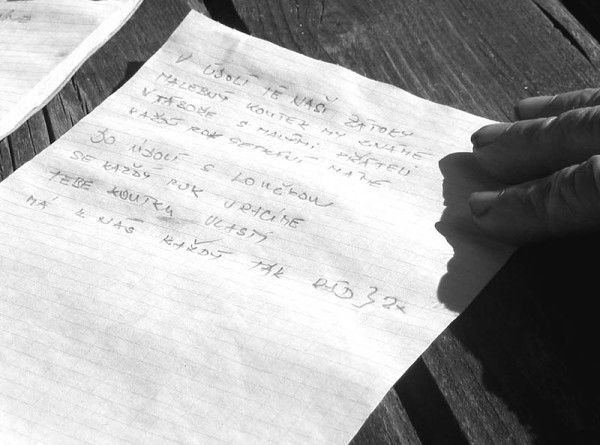 V ÚDOLÍ TÉ NAŠÍ ZÁTOKY
MALEBNÝ KOUTEK MY ZNÁME
V TÁBOŘE S MALÝMI PŘÁTELI
KAŽDÝ ROK SETKÁNÍ MÁME
DO ÚDOLÍ S LOUČKOU
SE KAŽDÝ ROK VRACÍME
TEBE KOUTKU VLASTÍ
MÁ Z NÁS KAŽDÝ TAK RÁD } 2x